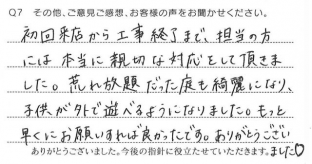 Q7 その他、ご意見ご感想、お客様の声をお聞かせください。
初回来店から工事終了まで、担当の方
には本当に親切な対応をして頂きま
した。荒れ放題だった庭も綺麗になり、
子供が外で遊べるようになりました。もっと
早くにお願いすれば良かったです。ありがとうござい
ました♡
ありがとうございました。今後の指針に役立たせていただきます。